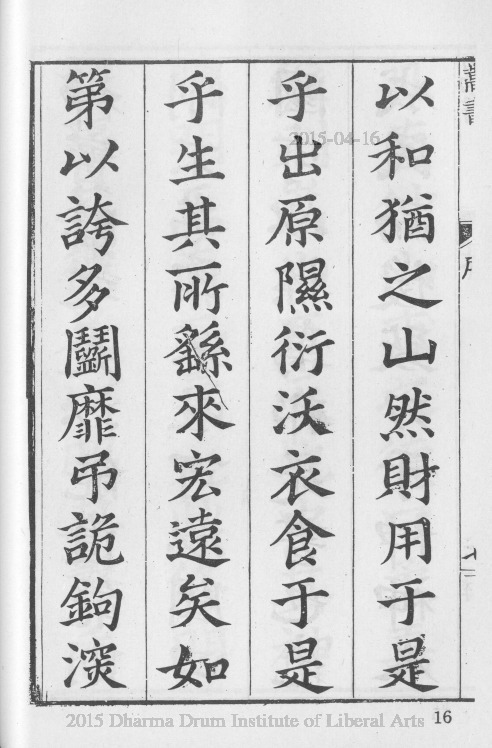 以和猶之山然財用于是
乎出原隰衍沃衣食于是
乎生其所繇來宏遠矣如
第以誇多鬭靡弔詭鉤深
2015-04-16
2015 Dharma Drum Institute of Liberal Arts
16